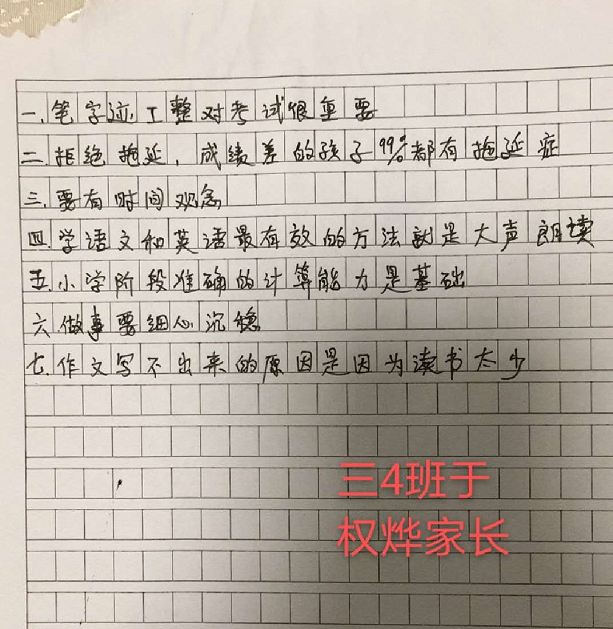 一.笔字迹工整对考试很重要
二.拒绝拖延,成绩差的孩子99%都有拖延症
三.要有时间观念
四.学语文和英语最有效的方法就是大声朗读
五.小学阶段准确的计算能力是基础
六.做事要细心沉稳
七.作文写不出来的原因是因为读书太少
三4班于
权烨家长